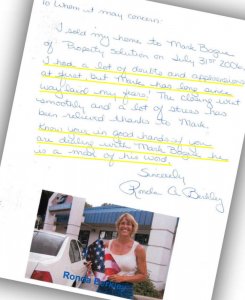 To Whom it may concern:
I sold my home to Mark Bogue
of Property Solution on July 31st 2006.
I had a lot of doubts and apprensions
at first but Mark has long since
way laid my fears! The closing went
smoothly and a lot of stress has
been relieved thanks to Mark.
Know your in good hands if you
are dealing with Mark Bogue he
is a man of his word.
Sincerely
Ronda A. Berkley
Ronda Berkley